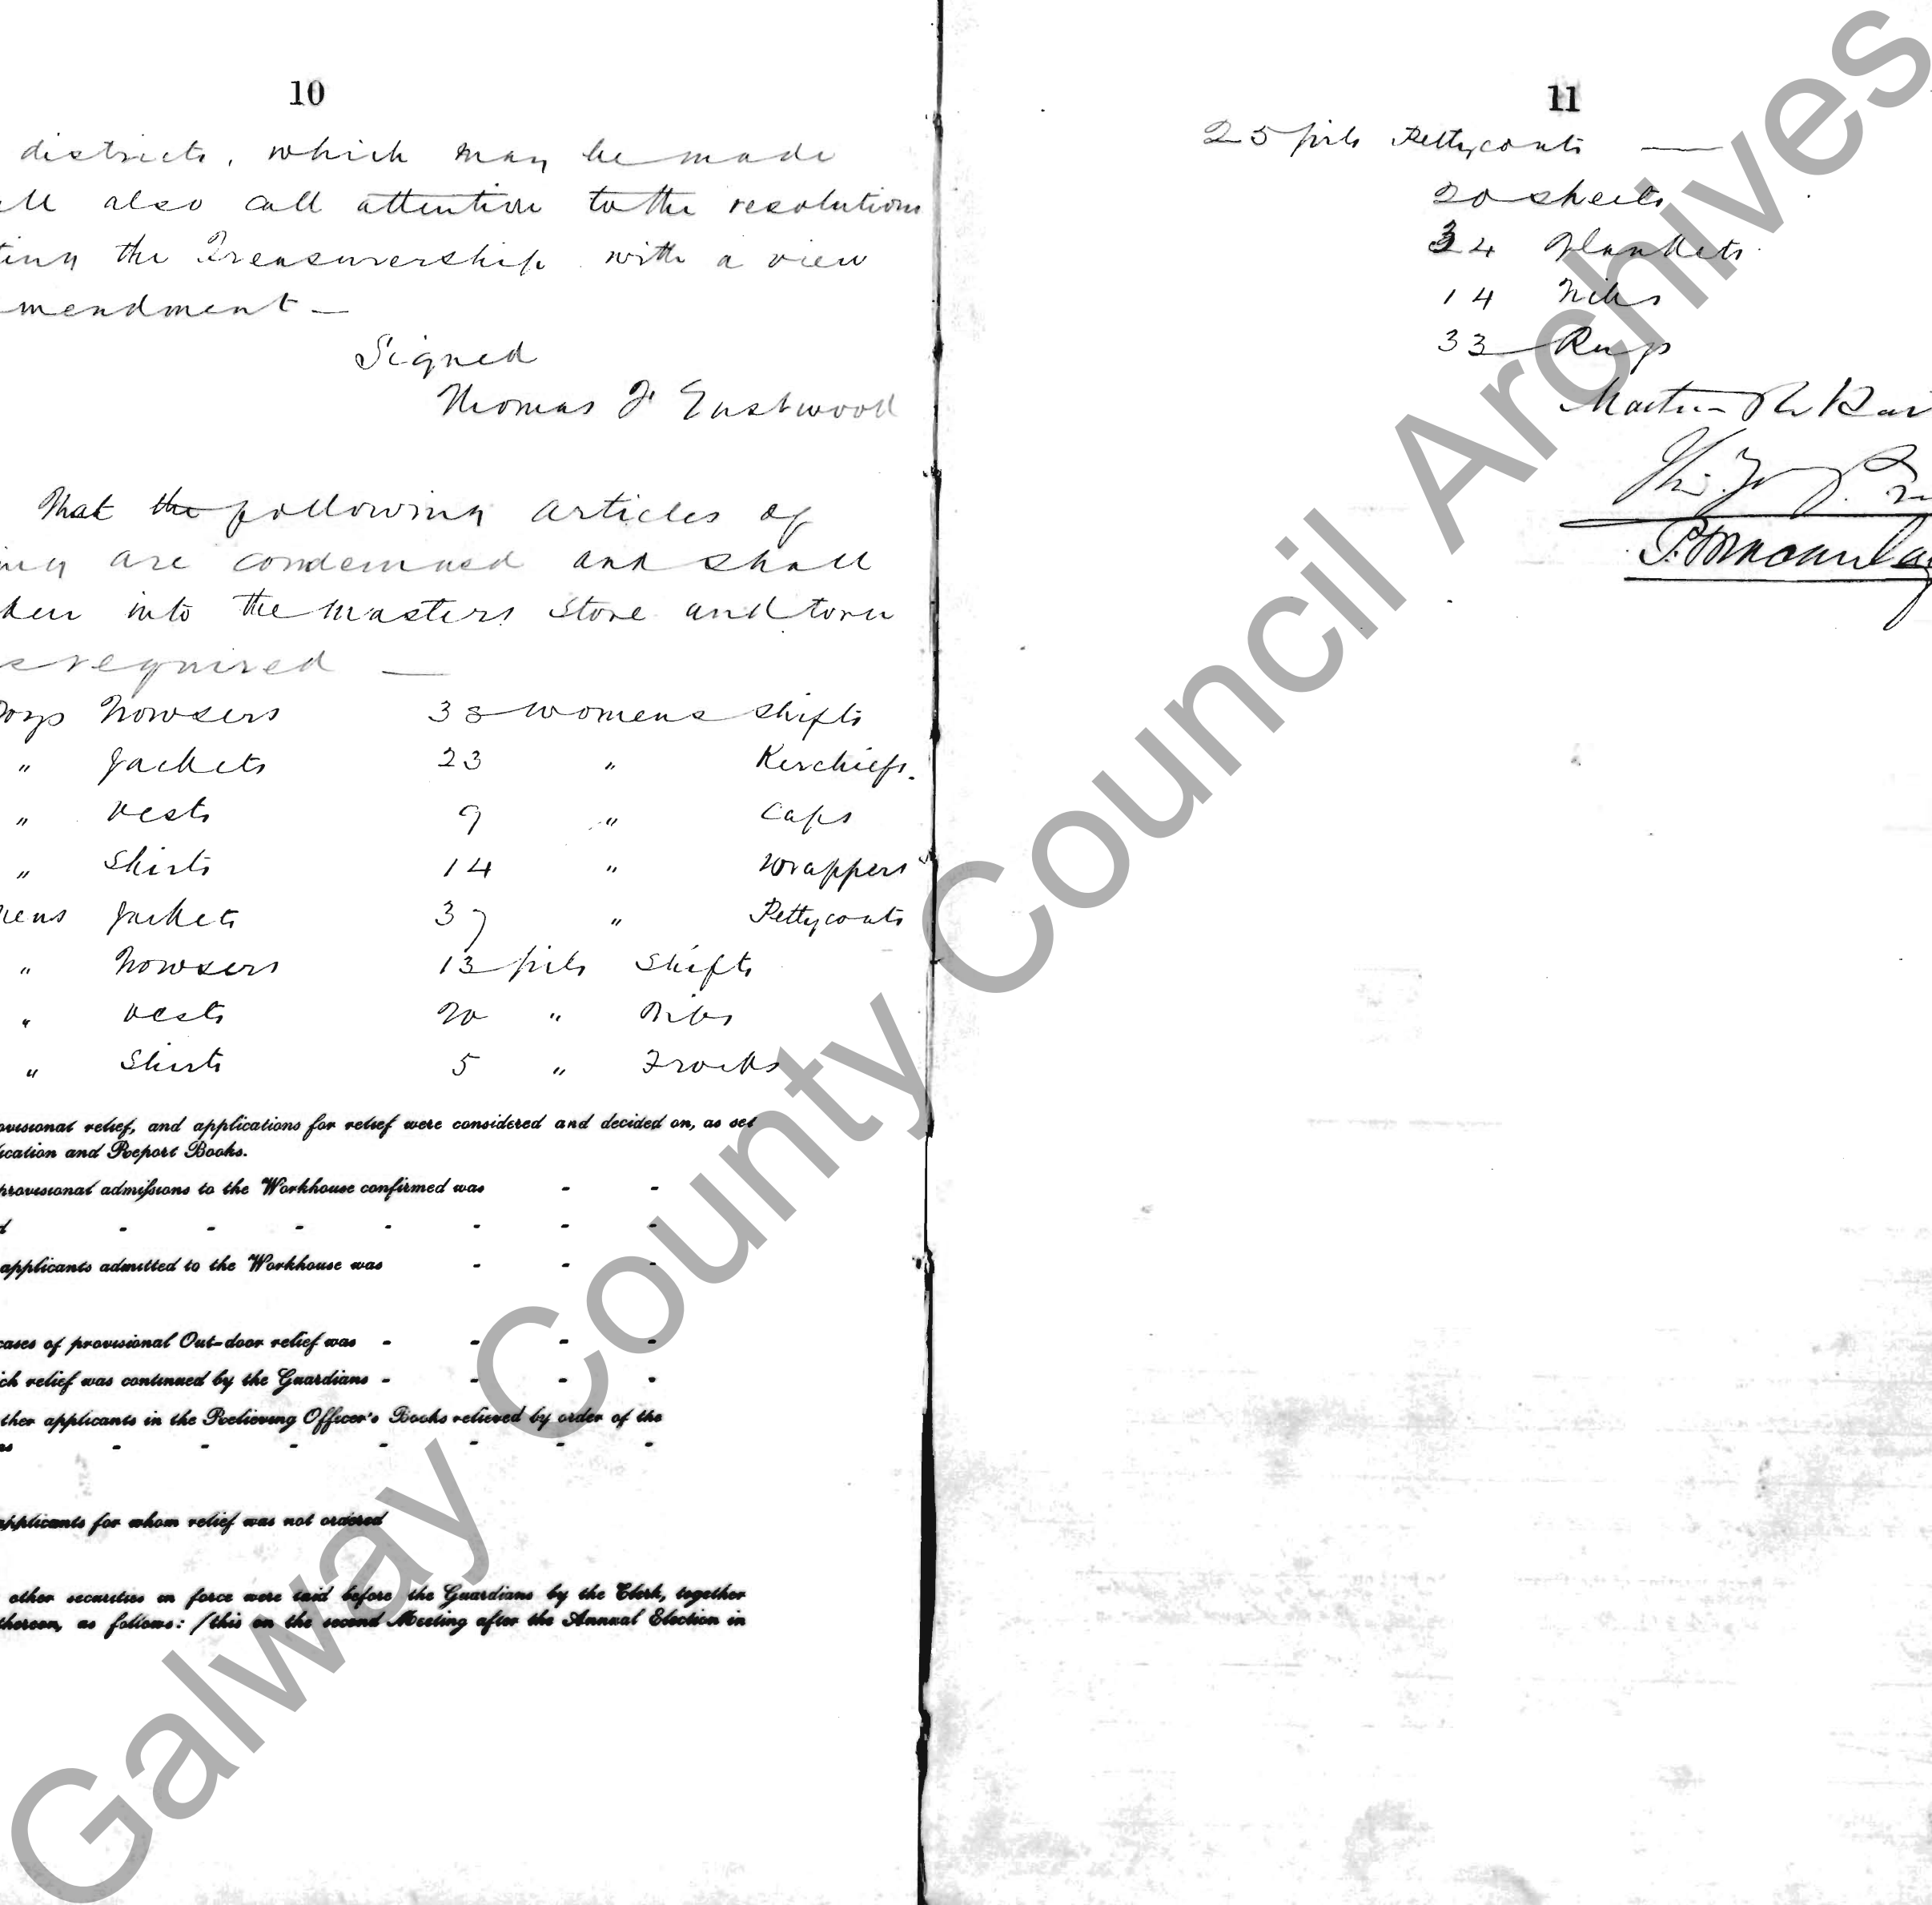 10
districts, which may be made
also call attention to the resolutions
the Treasurership with a view
mendment —
Signed
Thomas F Eastwood
That the following articles of
are condemned and shall
ken into the masters store and torn
required —
Boys Trowsers 38 womens shifts
" Jackets 23 " Kerchiefs.
" vests 9 " Caps
" Shirts 14 " wrappers
mens Jackets 37 " Pettycoats
" Trowsers 13 girls Shifts
" vests 20 " Bibs
" Shirts 5 " Frocks
ovisional relief, and applications for relief were considered and decided on, as set
ication and Report Books.
provisional admissions to the Workhouse confirmed was - -
d - - - - - - -
applicants admitted to the Workhouse was - - -
cases of provisional Out-door relief was - - - -
ch relief was continued by the Guardians - - - -
ther applicants in the Relieving Officer's Books relieved by order of the
rs - - - - - - -
applicants for whom relief was not ordered
other securities in force were laid before the Guardians by the Clerk, together
thereon, as follows: (this on the second Meeting after the Annual Election in
11
25 girls Pettycoats —
20 sheets
34 Blankets
14 Ticks
33 Rugs
Martin
Galway County Council Archives